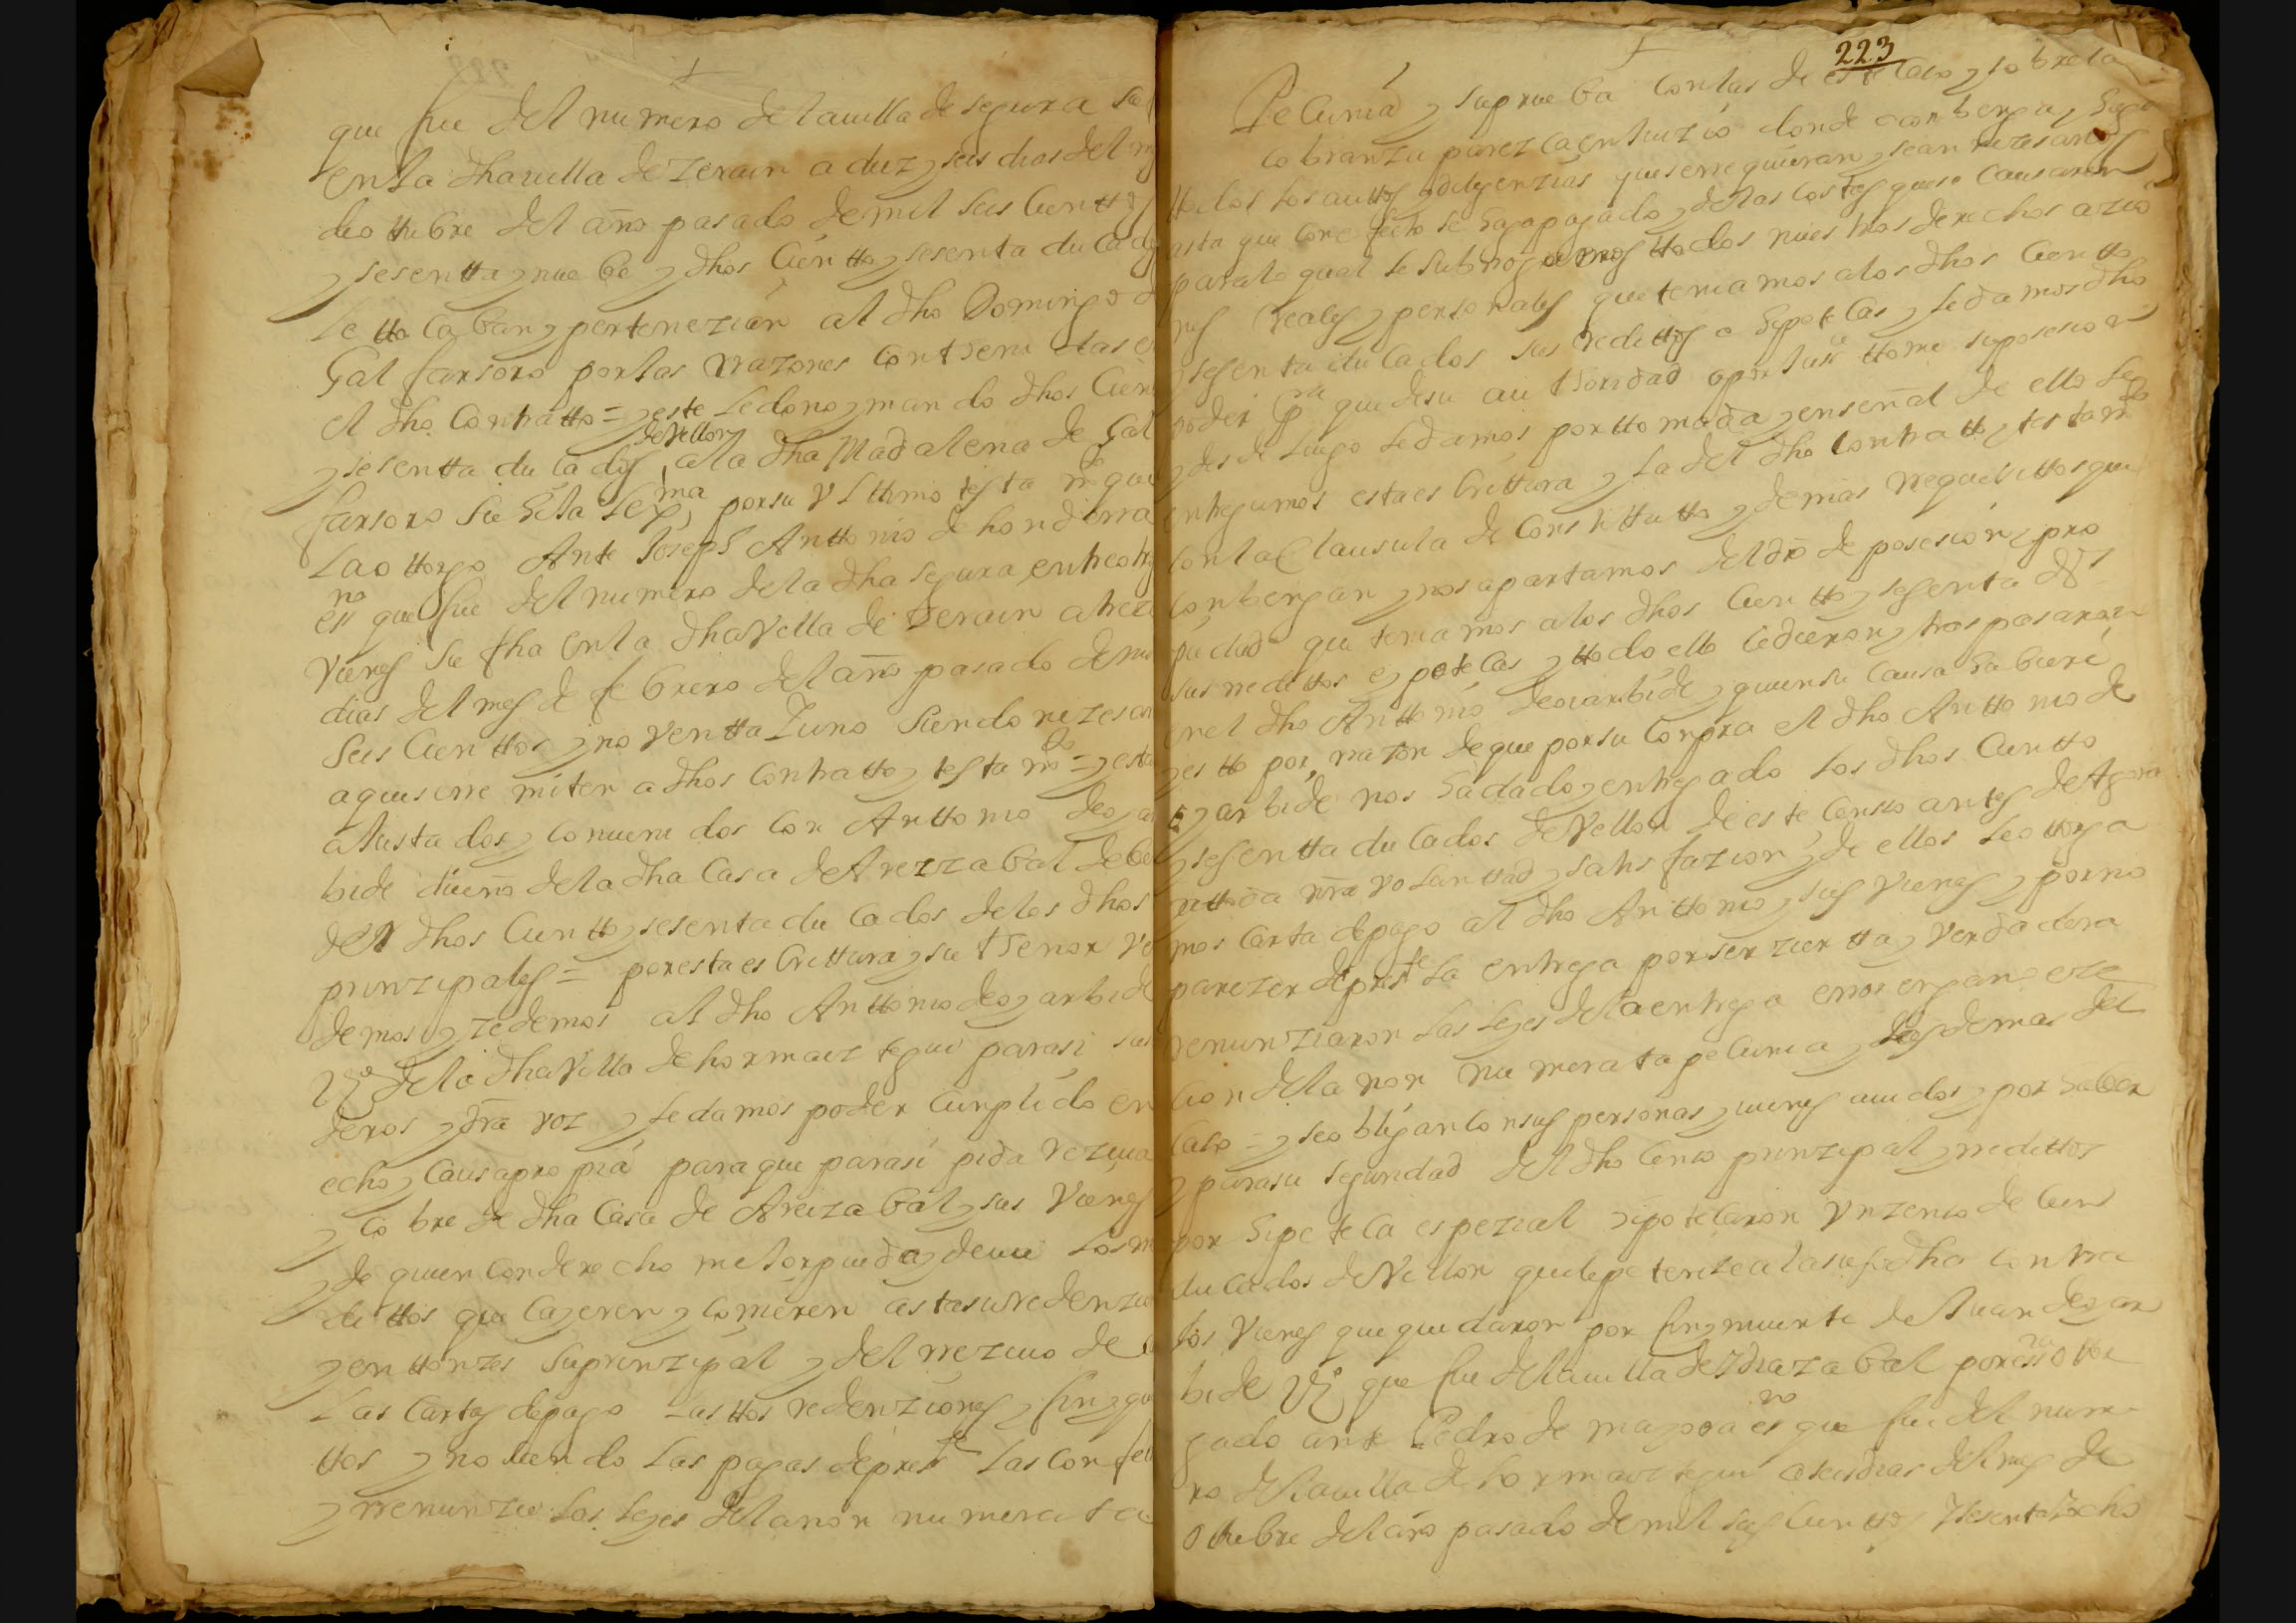 que fue del numero de la uilla de segura su f
en la dha uilla de Zerain a diez y seis dias del m
de ottubre del año pasado de mil seis cientto
y sesentta y nuebe y dhos cientto y sesenta ducado
le ttocaban y pertenezian al dho Domingo d
Gal farsoro por las rrazones conthenidas e
el dho contratto = y este le dono y mando dhos cien
y sesentta ducados de vellon a la dha Madalena de Gal
farsoro su hija lexma por su vlttimo testamto que
lao ttorgo Ante Joseph Anttonio de hondarra
esno que fue del numero de la dha segura entre otro
vienes su fha en la dha Villa de Zerain a treze
dias del mes de febrero del año pasado de mil
seis cienttos y noventta y uno siendo nezesario
a que se rre miten a dhos contratto y testamto = y esta
ajustados y conuenidos con Anttonio de oyar
bide dueño de la dha Casa de Areizabal de
dhos cientto y sesenta ducados de los dhos
prinzipales = por esta escrittura y su thenor
demos y zedemos al dho Anttonio de oyarbide
Vº de la dha Villa de hormaiztegui para si sus
deros y dra voz y le damos poder cunplido en
echo y causa propia para que para si pida reziua
y cobre de dha Casa de Areizabal y sus vienes
y de quien con derecho mejor pueda y deue los rre
dittos que cayeren y comieren asta su redenzion
y enttonzes su prinzipal y del rreziuo de
las cartas de pago lasttos redenziones y finiqui
ttos y no siendo las pagas de preste las confiese
y rrenunzie las leyes de la non numerata
223
Pecunia y su prueba con las de este caso y sobre la
cobranza parezca en Juizio donde conbenga y haga
ttodos los auttos y diligenzias que se rrequieran y sean nezesarios
asta que con efecto se haga pagado y de las costas que se causaren
para lo qual le subrrogamos ttodos nuestros derechos azio
nes rreales y personales que teniamos a los dhos cientto
y sesenta ducados sus redittos e hipotecas y le damos dho
poder pra que de su authoridad o por Justª ttome su posesion
y desde luego le damos por ttomada y en señal de ello le
entregamos esta escrittura y la del dho contratto y testamto
con la Clausula de Constittutto y demas rrequisittos que
conbengan y nos apartamos del dro de posesion y pro
piedad que teniamos a los dhos cientto y sesenta ds
sus redittos e ypotecas y ttodo ello zedieron y traspasaron
en el dho Anttonio de oiarbide y quien su causa hubiere
y estto por rrazon de que por su conpra el dho Anttonio de
oyarbide nos ha dado y entregado los dhos cientto
y sesentta ducados de Vellon de este censo antes de Agora
a ttoda nra voluntad y satisfazion y de ellos le ottorga
mos carta de pago al dho Anttonio y sus vienes y por no
parezer de preste la entrega por ser zierta y verdadera
renunziaron las leyes de la entrega error engaño exe
cion de la non numerata pecunia y las demas del
caso = y se obligan con sus personas y vienes auidos y por hauer
y para su seguridad del dho censo prinzipal y redittos
por hipoteca espezial ypotecaron vn zenso de cien
ducados de Vellon que le pertenze a la sussodha contra
los vienes que quedaron por fin y muerte de Juan de oyar
bide Vº que fue de la uilla de Ydiazabal por esra ottor
gado ante Pedro de mayora esno que fue del nume
ro de la uilla de hormaiztegui a seis dias del mes de
ottubre del año pasado de mil seis cientos y sesenta y ocho